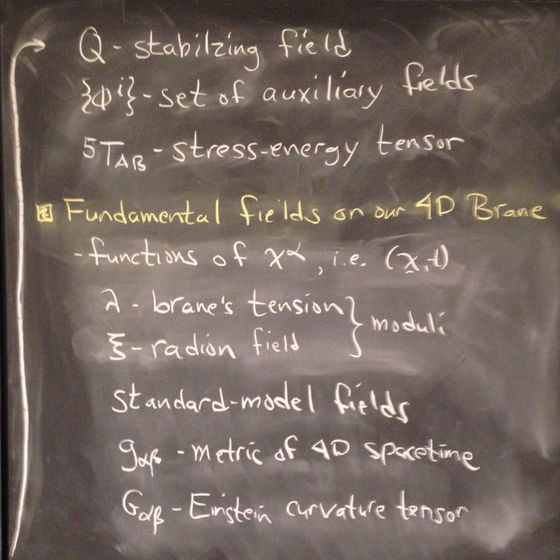 Q - stabilzing field
{Φⁱ} - set of auxiliary fields
⁵T_AB - stress-energy tensor
Fundamental fields on our 4D Brane
- functions of x^α, i.e. (x,t)
λ - brane's tension
ξ - radion field } moduli
standard-model fields
g_αβ - metric of 4D spacetime
G_αβ - Einstein curvature tensor